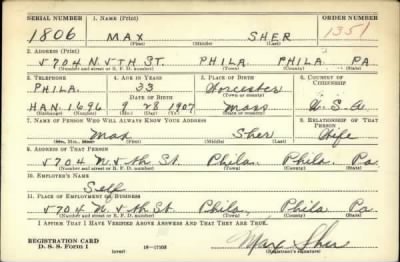 SERIAL NUMBER 1. NAME (Print) ORDER NUMBER
1806 MAX SHER 1351
(First) (Middle) (Last)
2. ADDRESS (Print)
5704 N. 5TH ST. PHILA. PHILA. PA
(Number and street or R. F. D. number) (Town) (County) (State)
3. TELEPHONE 4. AGE IN YEARS 5. PLACE OF BIRTH 6. COUNTRY OF CITIZENSHIP
PHILA. 33 Worcester
DATE OF BIRTH (Town or county)
HAN. 1696 9 28 1907 Mass U. S. A.
(Exchange) (Number) (Mo.) (Day) (Yr.) (State or country)
7. NAME OF PERSON WHO WILL ALWAYS KNOW YOUR ADDRESS 8. RELATIONSHIP OF THAT PERSON
Max Sher Wife
(Mr., Mrs., Miss) (First) (Middle) (Last)
9. ADDRESS OF THAT PERSON
5704 N. 5th St. Phila. Phila. Pa
(Number and street or R. F. D. number) (Town) (County) (State)
10. EMPLOYER'S NAME
Self
11. PLACE OF EMPLOYMENT OR BUSINESS
5704 N. 5th St. Phila. Phila Pa.
(Number and street or R. F. D. number) (Town) (County) (State)
I AFFIRM THAT I HAVE VERIFIED ABOVE ANSWERS AND THAT THEY ARE TRUE.
REGISTRATION CARD
D. S. S. Form 1 (over) 16—17105 Max Sher
(Registrant's signature)